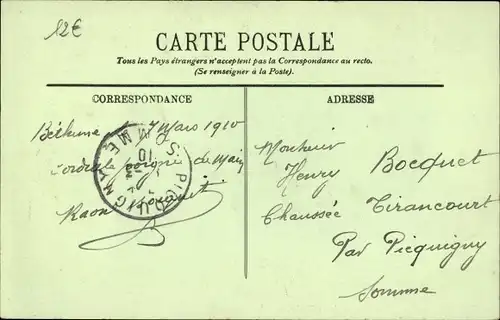 12€
CARTE POSTALE
Tous les Pays étrangers n'acceptent pas la Correspondance au recto.
(Se renseigner à la Poste).
CORRESPONDANCE
ADRESSE
Béthune le 7 Mars 1910
Cordiale poignée de Main
Bocquet
PICQUIGNY
SOMME
Monsieur
Henry Bocquet
Chaussée Tirancourt
Par Picquigny
Somme